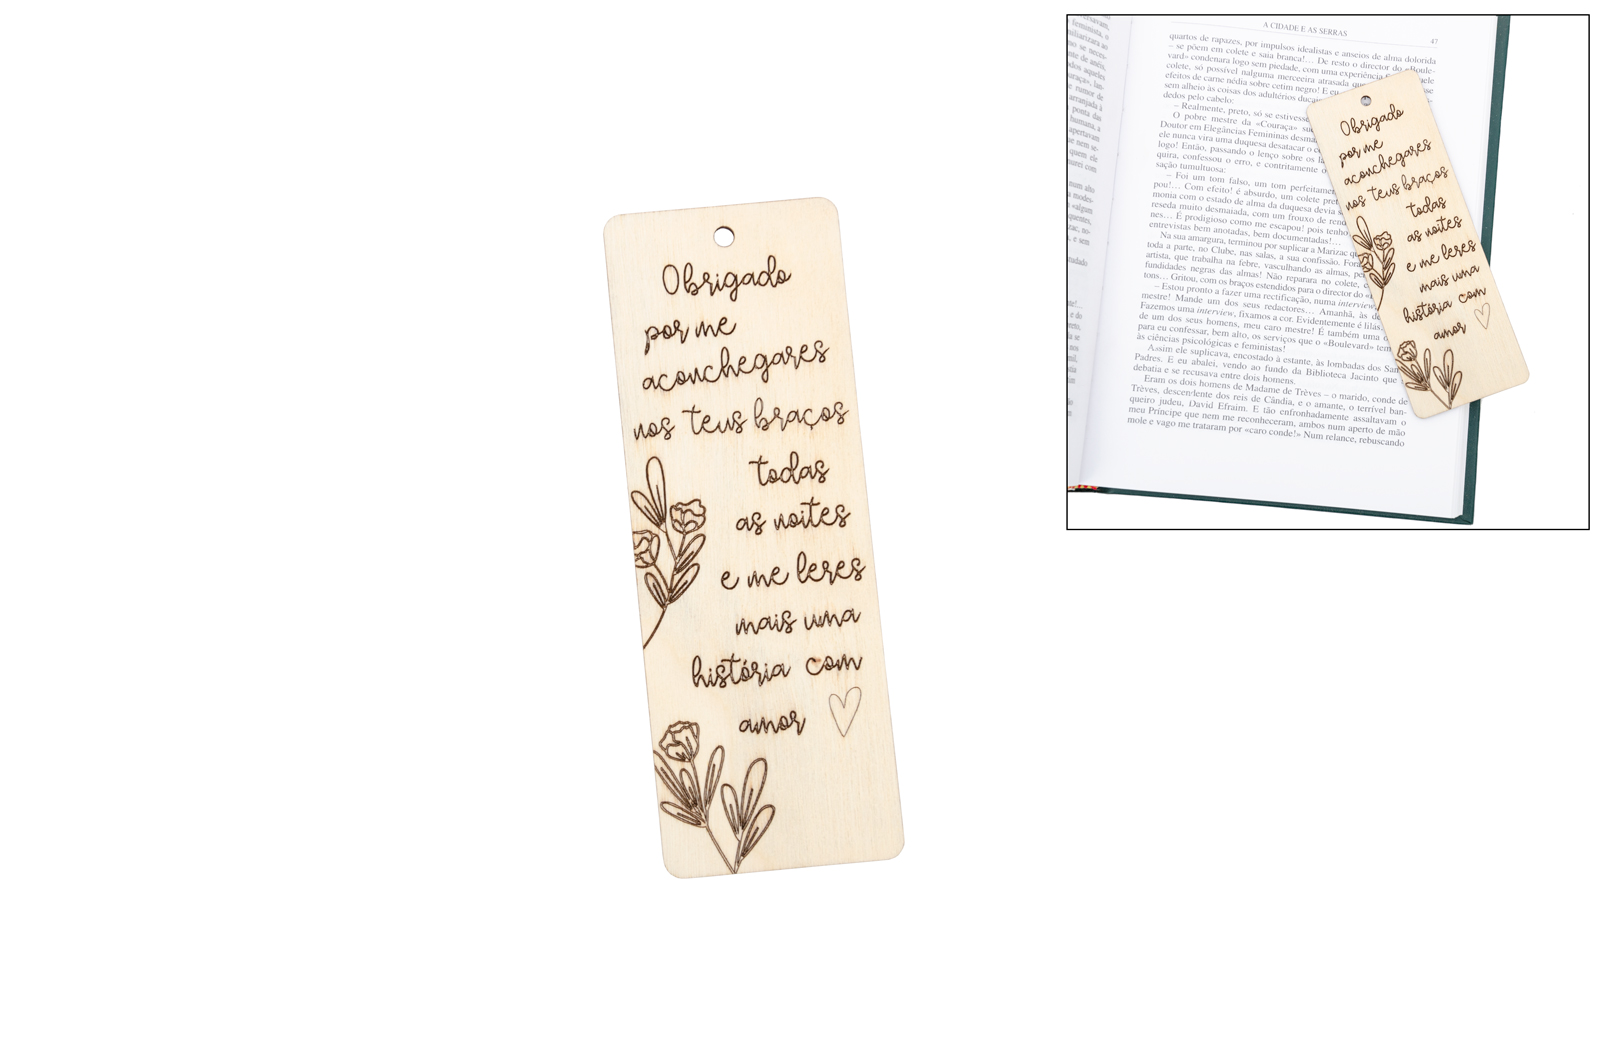 Obrigado
por me
aconchegares
nos teus braços
todas
as noites
e me leres
mais uma
história com
amor
A CIDADE E AS SERRAS
47
quartos de rapazes, por impulsos idealistas e anseios de alma dolorida
– se põem em colete e saia branca!... De resto o director do «Boule-
vard» condenara logo sem piedade, com uma experiência
colete, só possível nalguma merceeira atrasada
efeitos de carne nédia sobre cetim negro! E eu
sem alheio às coisas dos adultérios
dedos pelo cabelo:
– Realmente, preto, só se estivesse
O pobre mestre da «Couraça»
Doutor em Elegâncias Femininas
ele nunca vira uma duquesa desatacar o
logo! Então, passando o lenço sobre os
quira, confessou o erro, e contritamente
sação tumultuosa:
– Foi um tom falso, um tom
pou!... Com efeito! é absurdo, um colete
monia com o estado de alma da duquesa devia
reseda muito desmaiada, com um frouxo de
nes... É prodigioso como me escapou! pois tenho
entrevistas bem anotadas, bem documentadas!...
Na sua amargura, terminou por suplicar a Marizac
toda a parte, no Clube, nas salas, a sua confissão.
artista, que trabalha na febre, vasculhando as almas,
fundidades negras das almas! Não reparara no colete,
tons... Gritou, com os braços estendidos para o director do
– Estou pronto a fazer uma rectificação, numa interview,
mestre! Mande um dos seus redactores... Amanhã, às
Fazemos uma interview, fixamos a cor. Evidentemente é lilás
de um dos seus homens, meu caro mestre! É também uma
para eu confessar, bem alto, os serviços que o «Boulevard» tem
às ciências psicológicas e feministas!
Assim ele suplicava, encostado à estante, às lombadas dos
Padres. E eu abalei, vendo ao fundo da Biblioteca Jacinto que
debatia e se recusava entre dois homens.
Eram os dois homens de Madame de Trèves – o marido, conde de
Trèves, descendente dos reis de Cândia, e o amante, o terrível ban-
queiro judeu, David Efraim. E tão enfronhadamente assaltavam o
meu Príncipe que nem me reconheceram, ambos num aperto de mão
mole e vago me trataram por «caro conde!» Num relance, rebuscando
Obrigado
por me
aconchegares
nos teus braços
todas
as noites
e me leres
mais uma
história com
amor